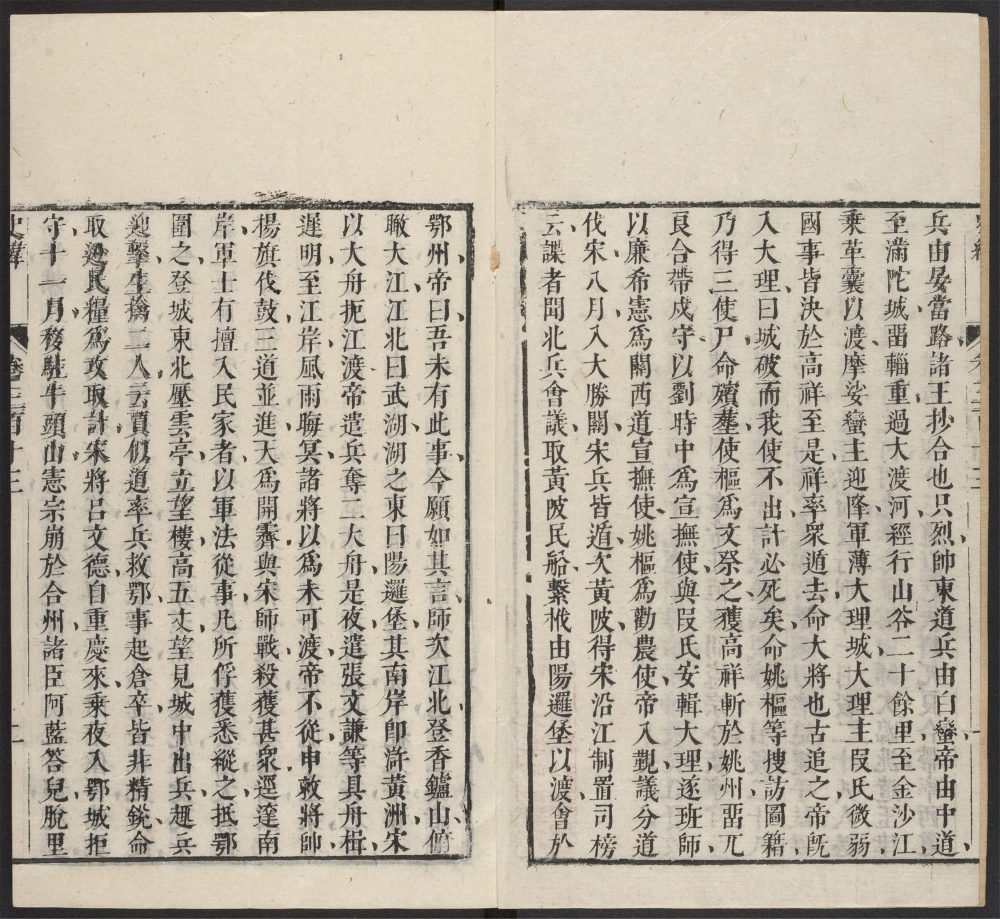 兵由晏當路諸王抄合也只烈帥東道兵由白蠻帝由中道
至滿陀城畱輜重過大渡河經行山谷二十餘里至金沙江
乗革囊以渡摩娑蠻主迎降軍薄大理城大理主段氏微弱
國事皆決於高祥至是祥率衆遁去命大將也古追之帝旣
入大理曰城破而我使不出計必死矣命姚樞等搜訪圖籍
乃得三使尸命殯塟使樞爲文祭之獲高祥斬於姚州畱兀
良合帶戍守以劉時中爲宣撫使與段氏安輯大理遂班師
以廉希憲爲關西道宣撫使姚樞爲勸農使帝入覲議分道
伐宋八月入大勝關宋兵皆遁次黃陂得宋沿江制置司榜
云諜者聞北兵會議取黃陂民船繫栰由陽邏堡以渡會於
鄂州帝曰吾未有此事今願如其言師次江北登香鑪山俯
瞰大江江北曰武湖湖之東曰陽邏堡其南岸卽滸黃洲宋
以大舟扼江渡帝遣兵奪二大舟是夜遣張文謙等具舟楫
遲明至江岸風雨晦冥諸將以爲未可渡帝不從申敕將帥
楊旗伐鼓三道並進天爲開霽與宋師戰殺獲甚衆逕達南
岸軍士有擅入民家者以軍法從事凡所俘獲悉縱之抵鄂
圍之登城東北壓雲亭立望樓高五丈望見城中出兵趣兵
迎擊生擒二人云賈似道率兵救鄂事起倉卒皆非精銳命
取逃民糧爲攻取計宋將呂文德自重慶來乗夜入鄂城拒
守十一月移駐牛頭山憲宗崩於合州諸臣阿藍答兒脫里
史緯
卷三百十三
上